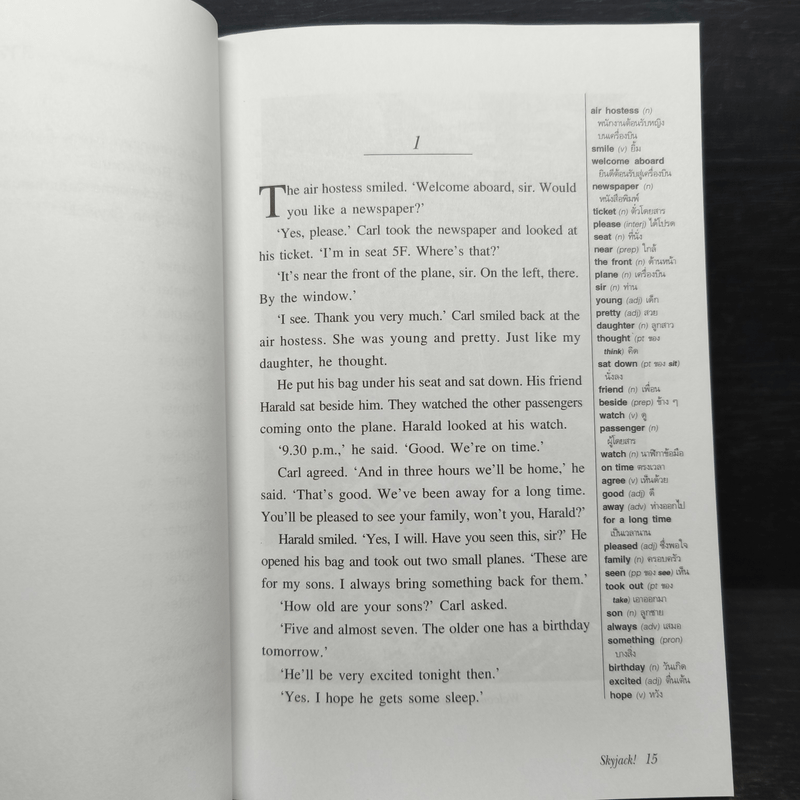 1
The air hostess smiled. ‘Welcome aboard, sir. Would
you like a newspaper?’
‘Yes, please.’ Carl took the newspaper and looked at
his ticket. ‘I’m in seat 5F. Where’s that?’
‘It’s near the front of the plane, sir. On the left, there.
By the window.’
‘I see. Thank you very much.’ Carl smiled back at the
air hostess. She was young and pretty. Just like my
daughter, he thought.
He put his bag under his seat and sat down. His friend
Harald sat beside him. They watched the other passengers
coming onto the plane. Harald looked at his watch.
‘9.30 p.m.,’ he said. ‘Good. We’re on time.’
Carl agreed. ‘And in three hours we’ll be home,’ he
said. ‘That’s good. We’ve been away for a long time.
You’ll be pleased to see your family, won’t you, Harald?’
Harald smiled. ‘Yes, I will. Have you seen this, sir?’ He
opened his bag and took out two small planes. ‘These are
for my sons. I always bring something back for them.’
‘How old are your sons?’ Carl asked.
‘Five and almost seven. The older one has a birthday
tomorrow.’
‘He’ll be very excited tonight then.’
‘Yes. I hope he gets some sleep.’
air hostess (n)
พนักงานต้อนรับหญิง
บนเครื่องบิน
smile (v) ยิ้ม
welcome aboard
ยินดีต้อนรับสู่เครื่องบิน
newspaper (n)
หนังสือพิมพ์
ticket (n) ตั๋วโดยสาร
please (interj) ได้โปรด
seat (n) ที่นั่ง
near (prep) ใกล้
the front (n) ด้านหน้า
plane (n) เครื่องบิน
sir (n) ท่าน
young (adj) เด็ก
pretty (adj) สวย
daughter (n) ลูกสาว
thought (pt ของ
think) คิด
sat down (pt ของ sit)
นั่งลง
friend (n) เพื่อน
beside (prep) ข้าง ๆ
watch (v) ดู
passenger (n)
ผู้โดยสาร
watch (n) นาฬิกาข้อมือ
on time ตรงเวลา
agree (v) เห็นด้วย
good (adj) ดี
away (adv) ห่างออกไป
for a long time
เป็นเวลานาน
pleased (adj) ซึ่งพอใจ
family (n) ครอบครัว
seen (pp ของ see) เห็น
took out (pt ของ
take) เอาออกมา
son (n) ลูกชาย
always (adv) เสมอ
something (pron)
บางสิ่ง
birthday (n) วันเกิด
excited (adj) ตื่นเต้น
hope (v) หวัง
Skyjack! 15